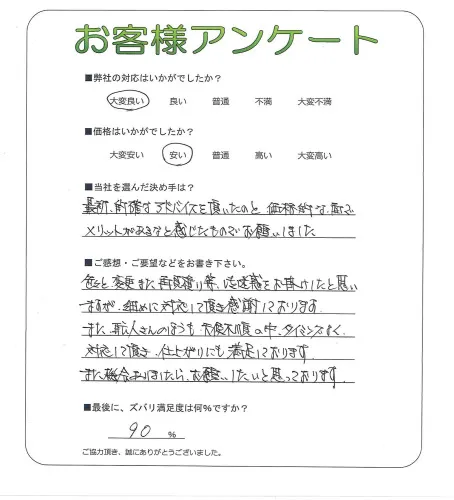 お客様アンケート
■弊社の対応はいかがでしたか？
大変良い 良い 普通 不満 大変不満
■価格はいかがでしたか？
大変安い 安い 普通 高い 大変高い
■当社を選んだ決め手は？
最初、的確なアドバイスを頂いたのと 価格的な面で
メリットがあるなと感じたものでお願いしました
■ご感想・ご要望などをお書き下さい。
色々と変更また再見積り等、ご迷惑をお掛けしたと思い
ますが、細めに対応して頂き感謝しております。
また、職人さんのほうも 天候不順の中、タイミングよく
対応して頂き、仕上がりにも満足しております。
また機会ありましたら、お願いしたいと思っております。
■最後に、ズバリ満足度は何%ですか？
90 %
ご協力頂き、誠にありがとうございました。